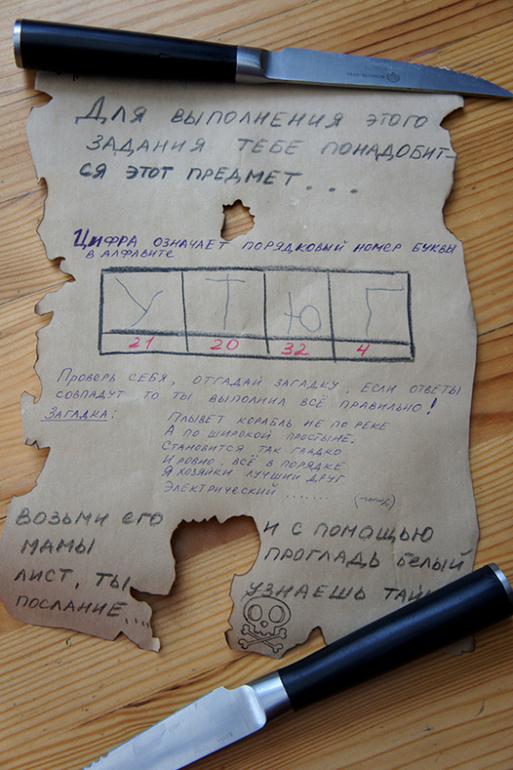 Для выполнения этого
задания тебе понадобит-
ся этот предмет...
Цифра означает порядковый номер буквы
в алфавите
У Т Ю Г
21 20 32 4
Проверь себя, отгадай загадку, если ответы
совпадут то ты выполнил всё правильно!
Загадка:
Плывет корабль не по реке
А по широкой простыне.
Становится так гладко
И ровно, всё в порядке
Я хозяйки лучший друг
Электрический ......
Возьми его и с помощью
мамы прогладь белый
лист, ты узнаешь
послание....